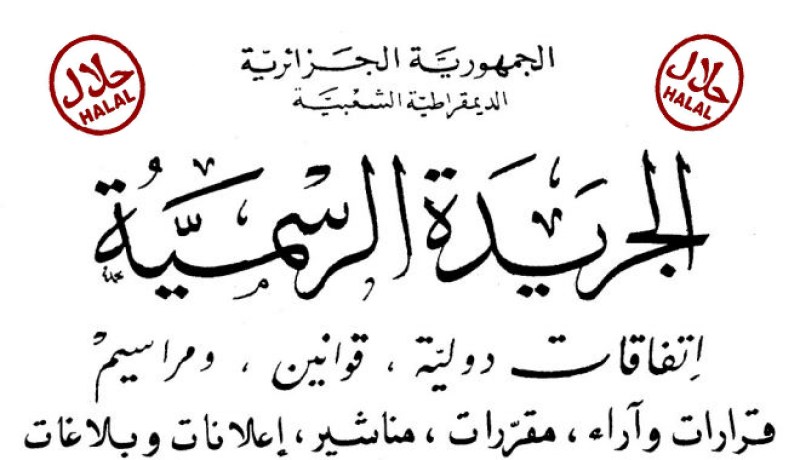 حلال
HALAL
الجمهوريّة الجزائريّة
حلال
HALAL
الديمقراطيّة الشعبيّة
الجريدة الرسميّة
إتفاقات دوليّة ، قوانين ، ومراسيم
قرارات وآراء ، مقرّرات ، مناشير ، إعلانات وبلاغات